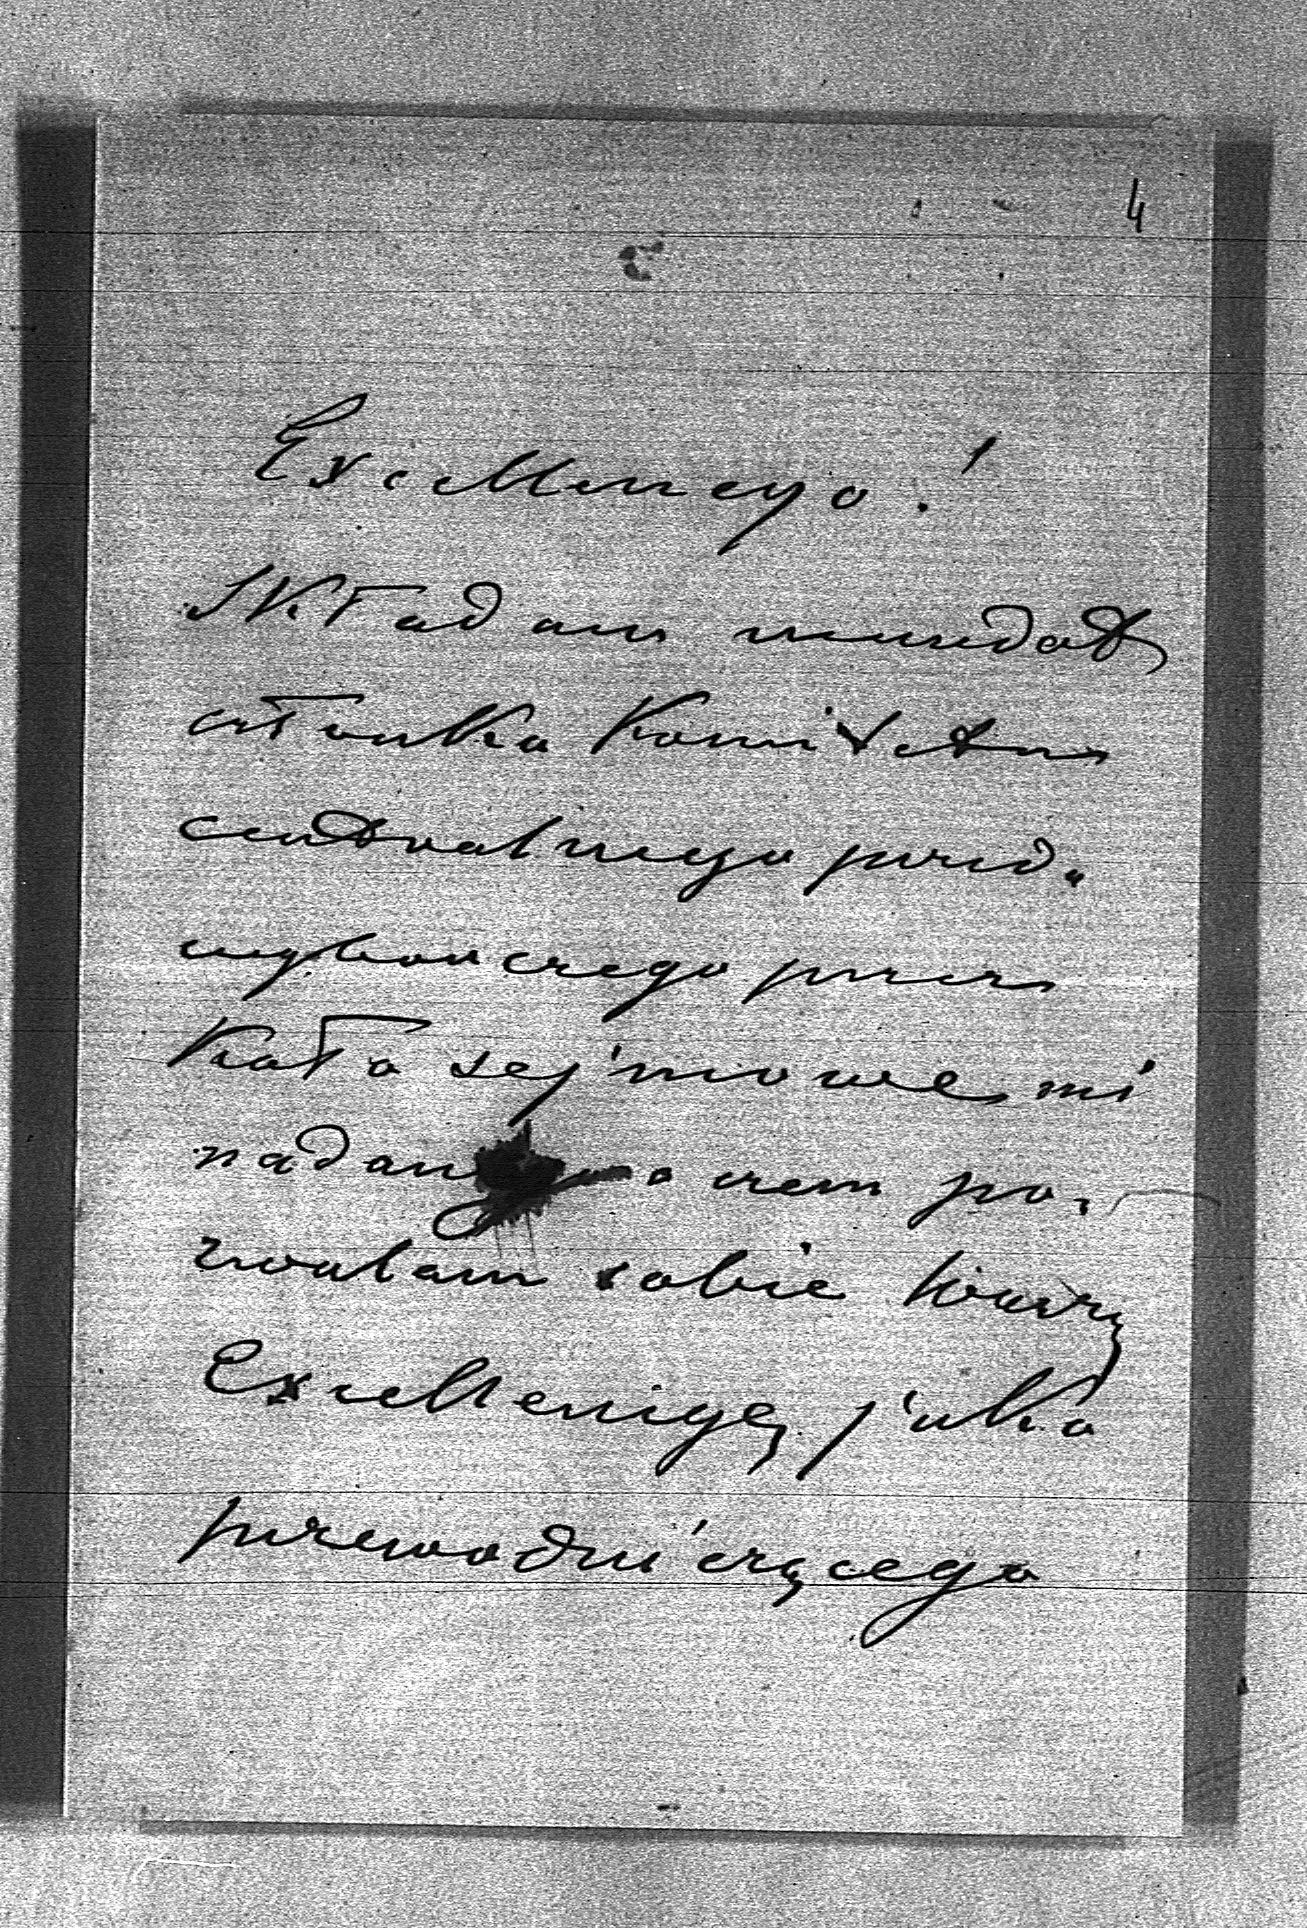 4
Excellencyo!
Składam mandat
członka Komitetu
centralnego przed„
wyborczego przez
Koło sejmowe mi
nadany o czem po„
zwalam sobie
Excellencyę, jako
przewodniczącego